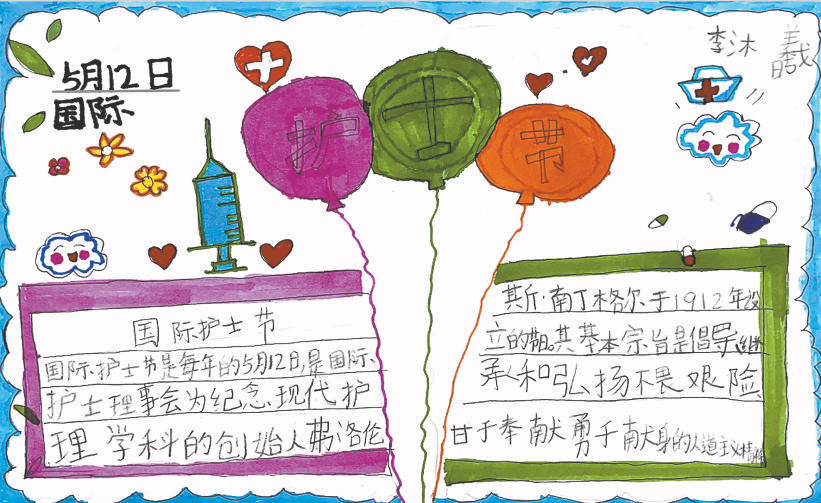 5月12日
国际
护士节
李沐曦
国际护士节
国际护士节是每年的5月12日,是国际
护士理事会为纪念现代护
理学科的创始人弗洛伦
斯·南丁格尔于1912年设
立的节日。其基本宗旨是倡导继
承和弘扬不畏艰险
甘于奉献勇于献身的人道主义精神